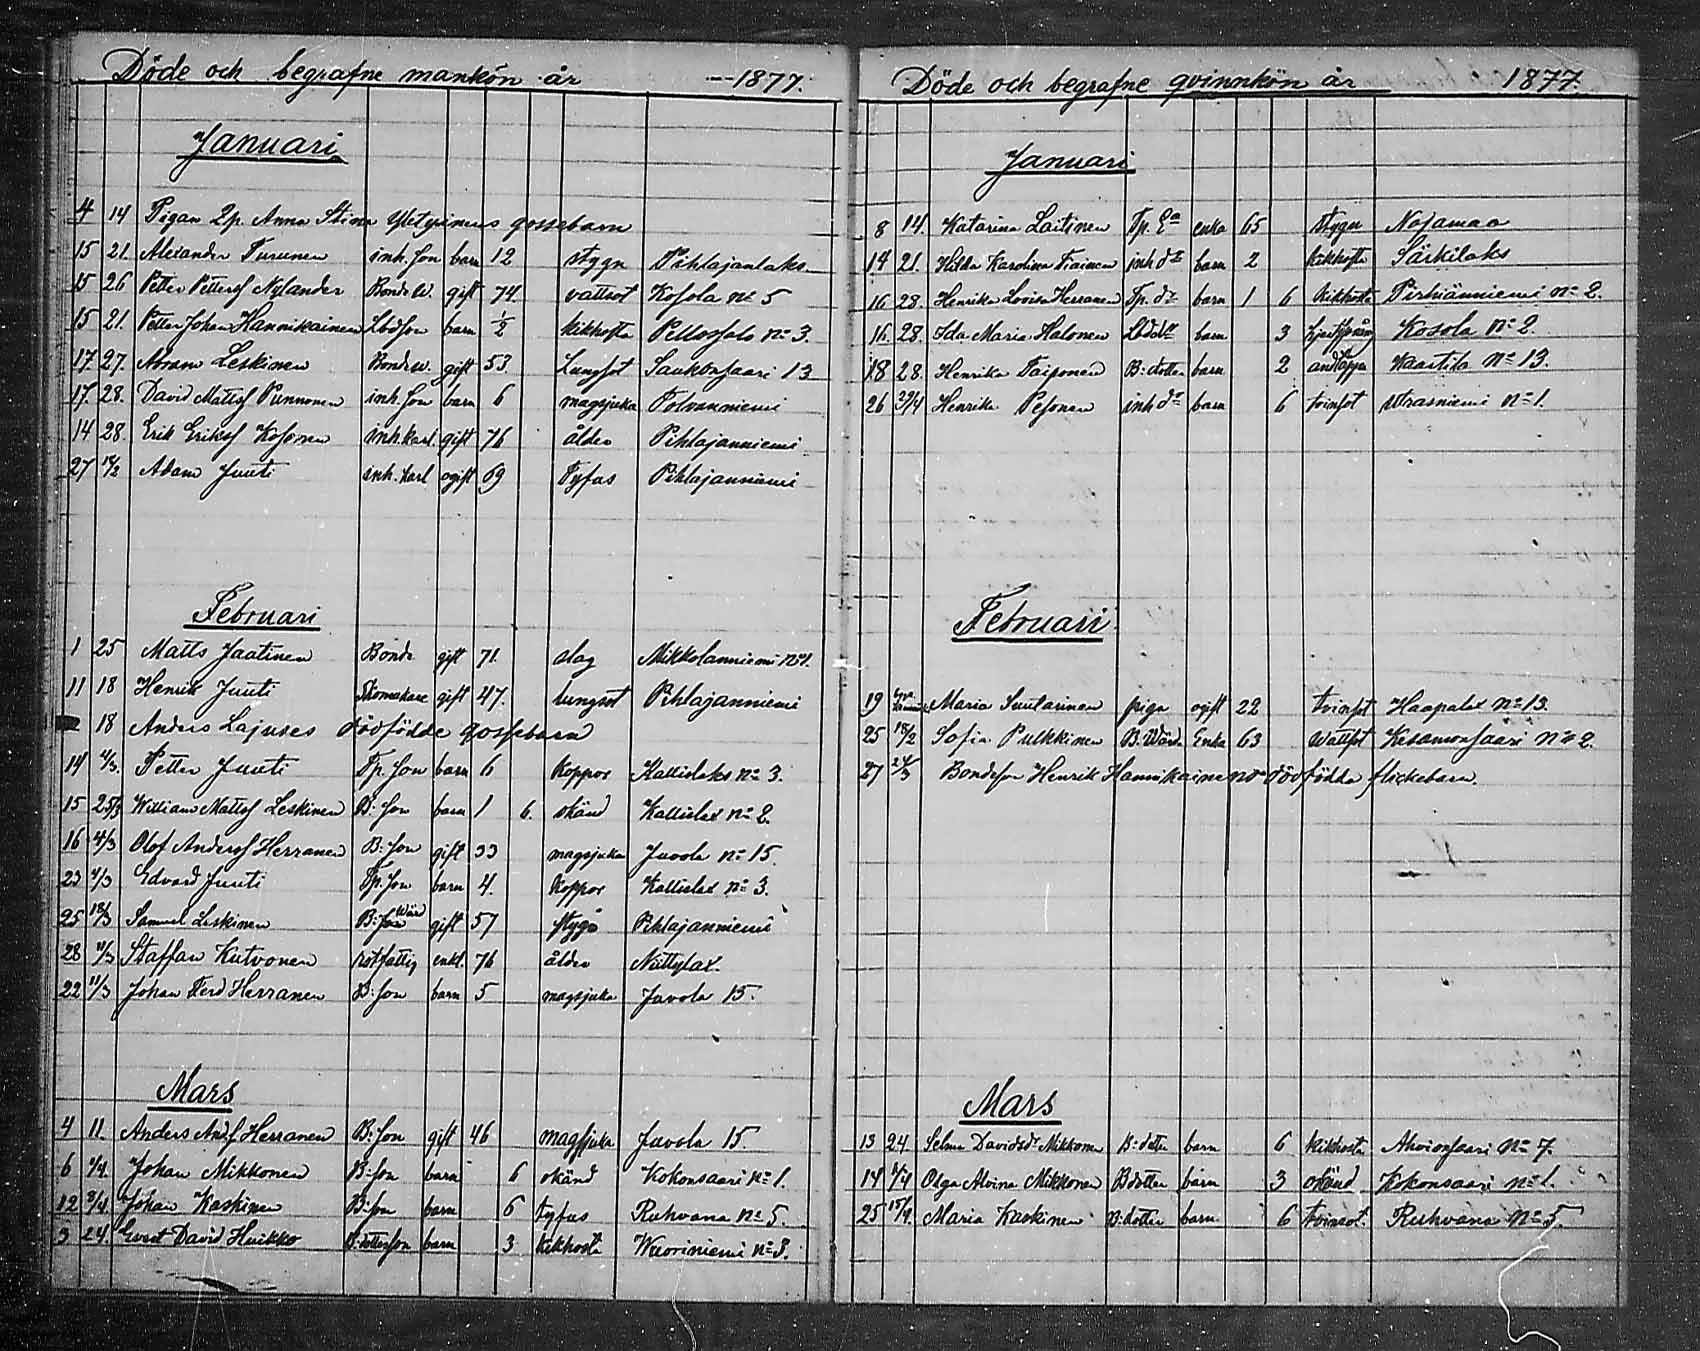 Döde och begrafne mankön år 1877.
Januari
4 14 Pigan Anna Stina gossebarn
15 21. Alexander Turunen inh. son barn 12 stygn Pihlajanlaks
15 26 Petter Petters Nylander Bonde gift 74 vattsot Kosola No 5
15 21. Petter Johan Hannikainen Lbdson barn 1/2 kikhosta Pellossalo No 3.
17. 27. Abram Leskinen Bonde gift 53 Lungsot Saukonsaari 13
17. 28. David Mattss Punnonen inh. son barn 6 magsjuka Tolvanniemi
14 28. Erik Erikss Kosonen inh. karl. gift 76 ålder Pihlajanniemi
27 Adam Juuti inh. karl ogift 69 Tyfus Pihlajanniemi
Februari
1 25 Matts Jaatinen Bonde gift 71. slag Mikkolanniemi No 1.
11 18 Henrik Juuti Skomakare gift 47. Lungsot Pihlajanniemi
18 Anders Lajuses dödfödde gossebarn
14 4/3. Petter Juuti Tp. son barn 6 koppor Kallislaks No 3.
15 25/3 William Mattss Leskinen B. son barn 1 6. okänd Kallislax No 2.
16 4/3 Olof Anderss Herranen B. son gift 33 magsjuka Juvola No 15.
23 4/3 Edvard Juuti Tp. son barn 4. koppor Kallislax No 3.
25 18/3 Samuel Leskinen B: son gift 57 stygn Pihlajanniemi
28 11/3 Staffan Kutvonen rotfattig enkl. 76 ålder Niittylax.
22 11/3 Johan Ferd Herranen B: son barn 5 magsjuka Juvola 15.
Mars
4 11. Anders Ands Herranen B: son gift 46 magsjuka Juvola 15.
6 Johan Mikkonen B: son barn 6 okänd Kokonsaari No 1.
12 Johan Kaskinen B: son barn 6 tyfus Ruhvana No 5.
9 24. Evert David Huikko B: dotterson barn 3 kikhosta Wuoriniemi No 3.
Döde och begrafne qvinnkön år 1877.
Januari
8 14. Katarina Laitinen Tp. Ea enka 65 stygn Nojamaa
14 21. Hilda Karolina Tiainen inh dr barn 2 kikhosta Särkilaks
16 28. Henrika Lovisa Herranen Tp. dr barn 1 6 kikhosta Pirhiänniemi No 2.
16. 28. Ida Maria Halonen barn 3 Kosola No 2.
18 28. Henrika Taiponen B: dotter barn 2 andtäppa Kaartila No 13.
26 Henrika Pesonen inh dr barn 6 tvinsot Utrasniemi No 1.
Februari
19 Maria Suutarinen piga ogift 22 tvinsot Haapalax No 13
25 18/2 Sofia Pulkkinen B. Wärds Enka 63 Wattsot Kesamonsaari No 2.
27 Bondeson Henrik Hannikainens dödfödda flickebarn.
Mars
13 24. Selma Davidsdr Mikkonen B: dotter barn 6 kikhosta Ahvionsaari No 7.
14 Olga Alvina Mikkonen B dotter barn 3 okänd Kokonsaari No 1.
25 Maria Kaskinen B: dotter barn 6 tvinsot. Ruhvana No 5.